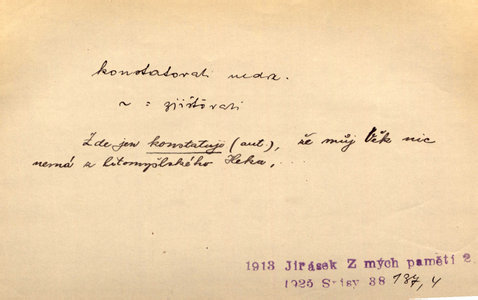 konstatovati nedk.
~ = zjišťovati
Zde jen konstatuji (aut.), že můj Věk nic
nemá z litomyšlského Heka, ...
1913 Jirásek Z mých pamětí 2
1925 Spisy 38 187, 4